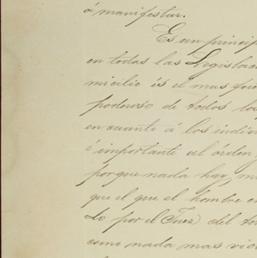 á manifestar.
Es un princip
en todas las Legislac
micilio és el mas
poderoso de todos los
en cuanto á los indivi
é importante al órden
porque nada hay, m
que el que el hombre
do por el Juez del
como nada mas vio